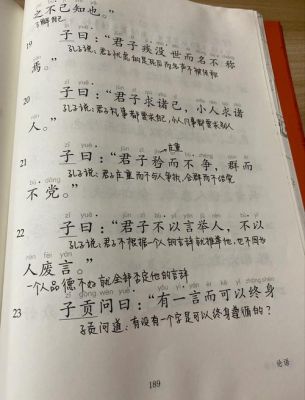 之不己知也。”
19 子曰：“君子疾没世而名不称
焉。”
20 子曰：“君子求诸己，小人求诸
孔子说：君子凡事都要求己，小人凡事都要求别人
人。”
庄重
21 子曰：“君子矜而不争，群而
孔子说：君子庄重而不与人争执，合群而不结党
不党。”
22 子曰：“君子不以言举人，不以
孔子说：君子不根据一个人的言辞就推举他，也不因为
人废言。”
一个人品德不好就全部否定他的言辞
23 子贡问曰：“有一言而可以终身
子贡问道：有没有一个字是可以终身遵循的？
论语
189